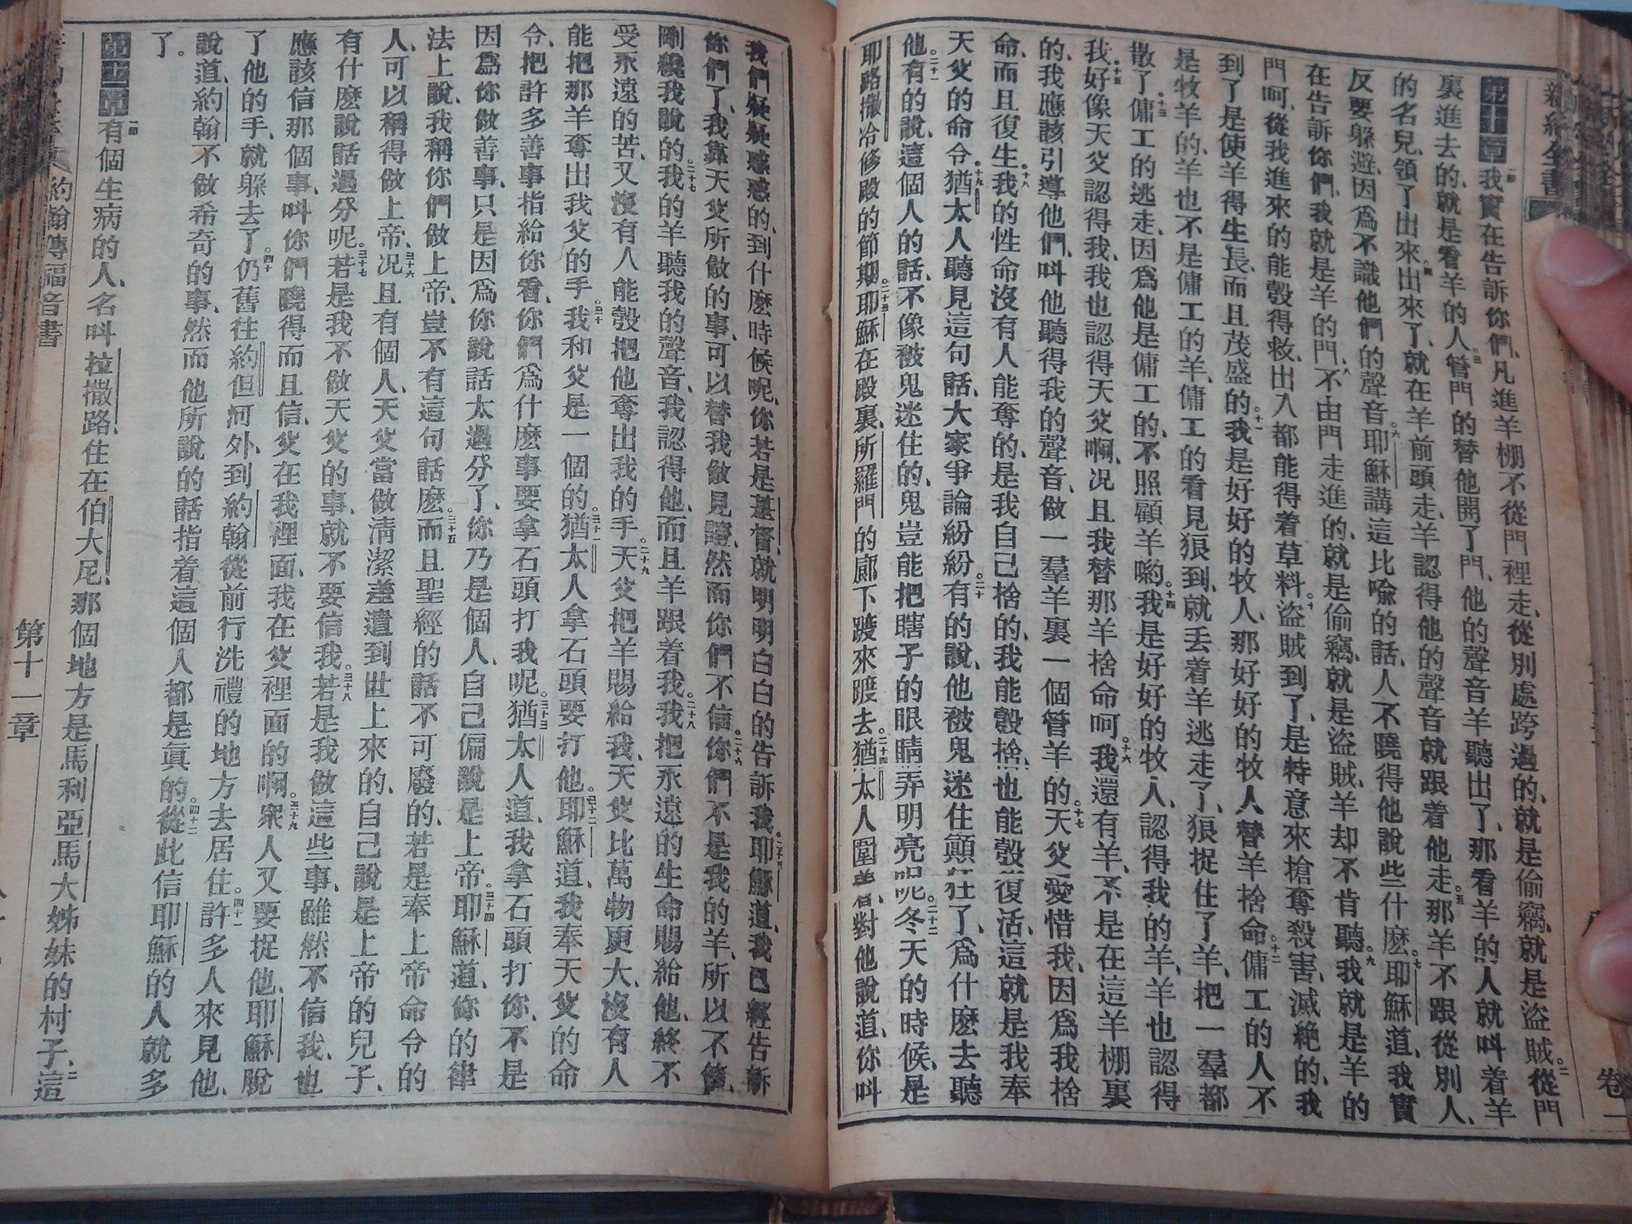 新約全書 卷一
第十章一節我實在告訴你們、凡進羊棚不從門裡走、從別處跨過的、就是偷竊、就是盜賊。二從門
裏進去的、就是看羊的人。三管門的替他開了門、他的聲音羊聽出了、那看羊的人就叫着羊
的名兒、領了出來。四出來了、就在羊前頭走、羊認得他的聲音就跟着他走。五那羊不跟從別人、
反要躲避、因爲不識他們的聲音。六耶穌講這比喩的話、人不曉得他說些什麽。七耶穌道、我實
在告訴你們、我就是羊的門。八不由門走進的、就是偷竊、就是盜賊、羊却不肯聽。九我就是羊的
門呵、從我進來的能彀得救、出入都能得着草料。十盜賊到了、是特意來搶奪殺害、滅絕的、我
到了、是使羊得生長、而且茂盛的。十一我是好好的牧人、那好好的牧人替羊捨命。十二傭工的人不
是牧羊的、羊也不是傭工的羊、傭工的看見狼到、就丟着羊逃走了、狼捉住了羊、把一羣都
散了。十三傭工的逃走、因爲他是傭工的、不照顧羊喲。十四我是好好的牧人、認得我的羊、羊也認得
我。十五好像天父認得我、我也認得天父啊、况且我替那羊捨命呵。十六我還有羊、不是在這羊棚裏
的、我應該引導他們、叫他聽得我的聲音、做一羣羊裏一個管羊的。十七天父愛惜我、因爲我捨
命、而且復生。十八我的性命沒有人能奪的、是我自己捨的、我能彀捨、也能彀復活、這就是我奉
天父的命令。十九猶太人聽見這句話、大家爭論紛紛。二十有的說、他被鬼迷住顚狂了、爲什麽去聽
他。二十一有的說、這個人的話、不像被鬼迷住的、鬼豈能把瞎子的眼睛弄明亮呢。二十二冬天的時候、是
耶路撒冷修殿的節期。二十三耶穌在殿裏、所羅門的廊下踱來踱去。二十四猶太人圍着、對他說道、你叫
我們疑疑惑惑的、到什麽時候呢、你若是基督、就明明白白的告訴我。二十五耶穌道、我已經告訴
你們了、我靠天父所做的事、可以替我做見證、然而你們不信。二十六你們不是我的羊、所以不信、
剛纔我說的。二十七我的羊聽我的聲音、我認得他、而且羊跟着我。二十八我把永遠的生命賜給他、終不
受永遠的苦、又沒有人能彀把他奪出我的手。二十九天父把羊賜給我、天父比萬物更大、沒有人
能把那羊奪出我父的手。三十我和父是一個的。三十一猶太人拿石頭要打他。三十二耶穌道、我奉天父的命
令、把許多善事指給你看、你們爲什麽事要拿石頭打我呢。三十三猶太人道、我拿石頭打你、不是
因爲你做善事、只是因爲你說話太過分了、你乃是個人、自己偏說是上帝。三十四耶穌道、你的律
法上說、我稱你們做上帝、豈不有這句話麽。三十五而且聖經的話不可廢的、若是奉上帝命令的
人、可以稱得做上帝。三十六况且有個人、天父當做淸潔、差遣到世上來的、自己說是上帝的兒子、
有什麽說話過分呢。三十七若是我不做天父的事、就不要信我。三十八若是我做這些事、雖然不信我、也
應該信那個事、叫你們曉得而且信、父在我裡面、我在父裡面的啊。三十九衆人又要捉他、耶穌脫
了他的手、就躱去了。四十仍舊往約但河外、到約翰從前行洗禮的地方去居住。四十一許多人來見他、
說道、約翰不做希奇的事、然而他所說的話指着這個人都是眞的。四十二從此信耶穌的人就多
了。
第十一章一節有個生病的人、名叫拉撒路、住在伯大尼、那個地方是馬利亞馬大姊妹的村子。二這
約翰傳福音書 第十一章